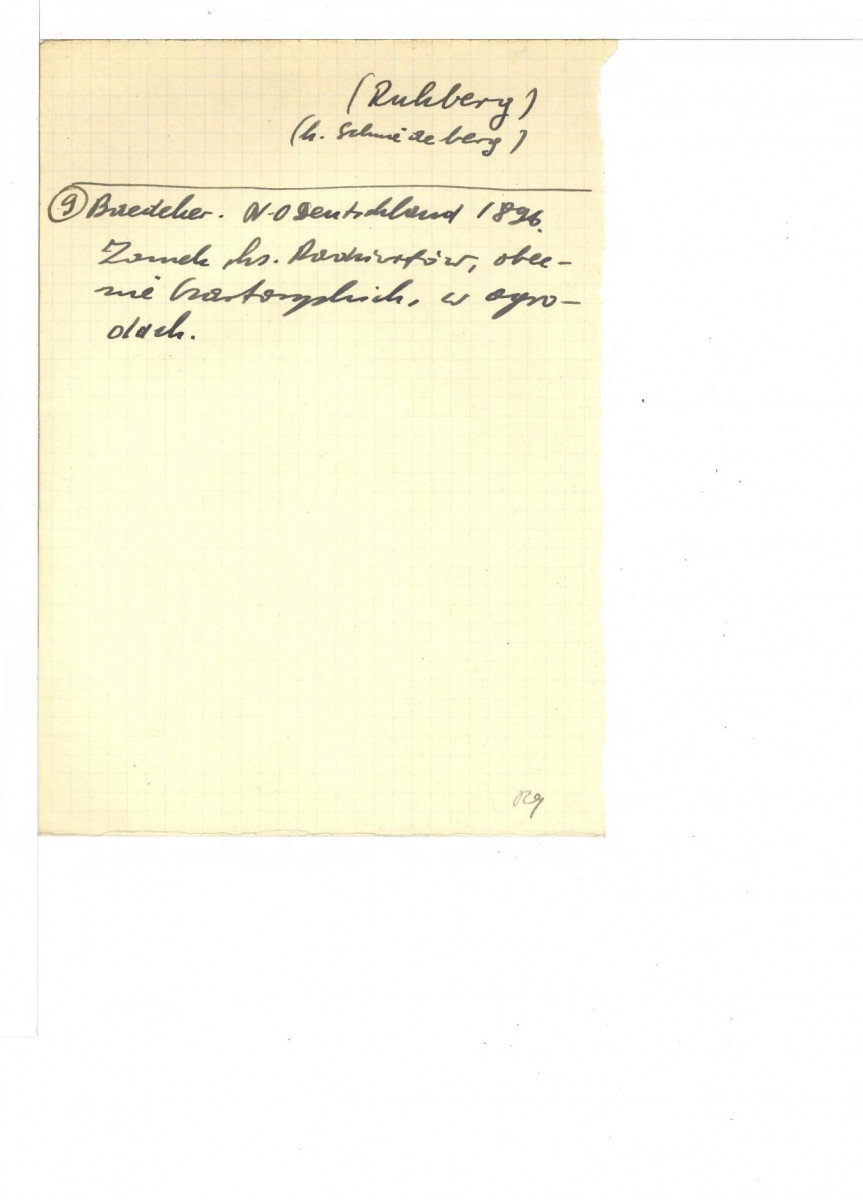 (Ruhberg)
(k. Schmiedeberg)
9 Baedeker. N-O Deutschland 1896.
Zamek ks. Radziwiłłów, obec-
nie Czartoryskich, w ogro-
dach.